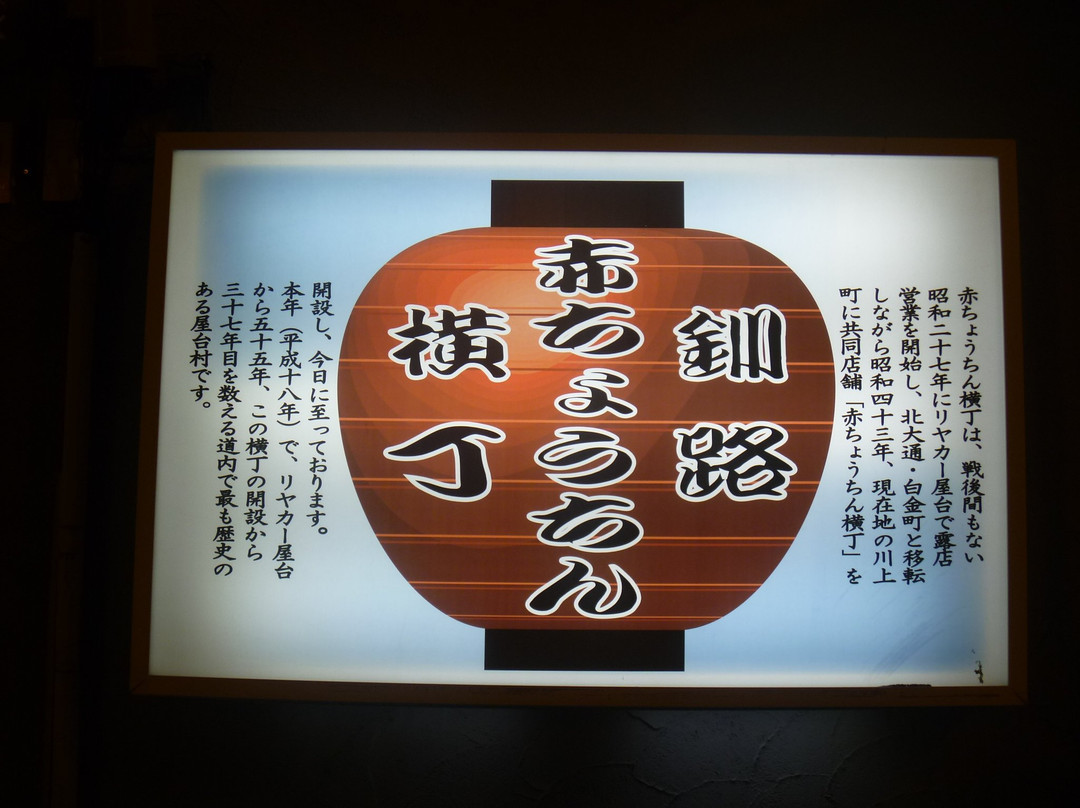 赤ちょうちん横丁は、戦後間もない
昭和二十七年にリヤカー屋台で露店
営業を開始し、北大通・白金町と移転
しながら昭和四十三年、現在地の川上
町に共同店舗「赤ちょうちん横丁」を
釧路
赤ちょうちん
横丁
開設し、今日に至っております。
本年（平成十八年）で、リヤカー屋台
から五十五年、この横丁の開設から
三十七年目を数える道内で最も歴史の
ある屋台村です。